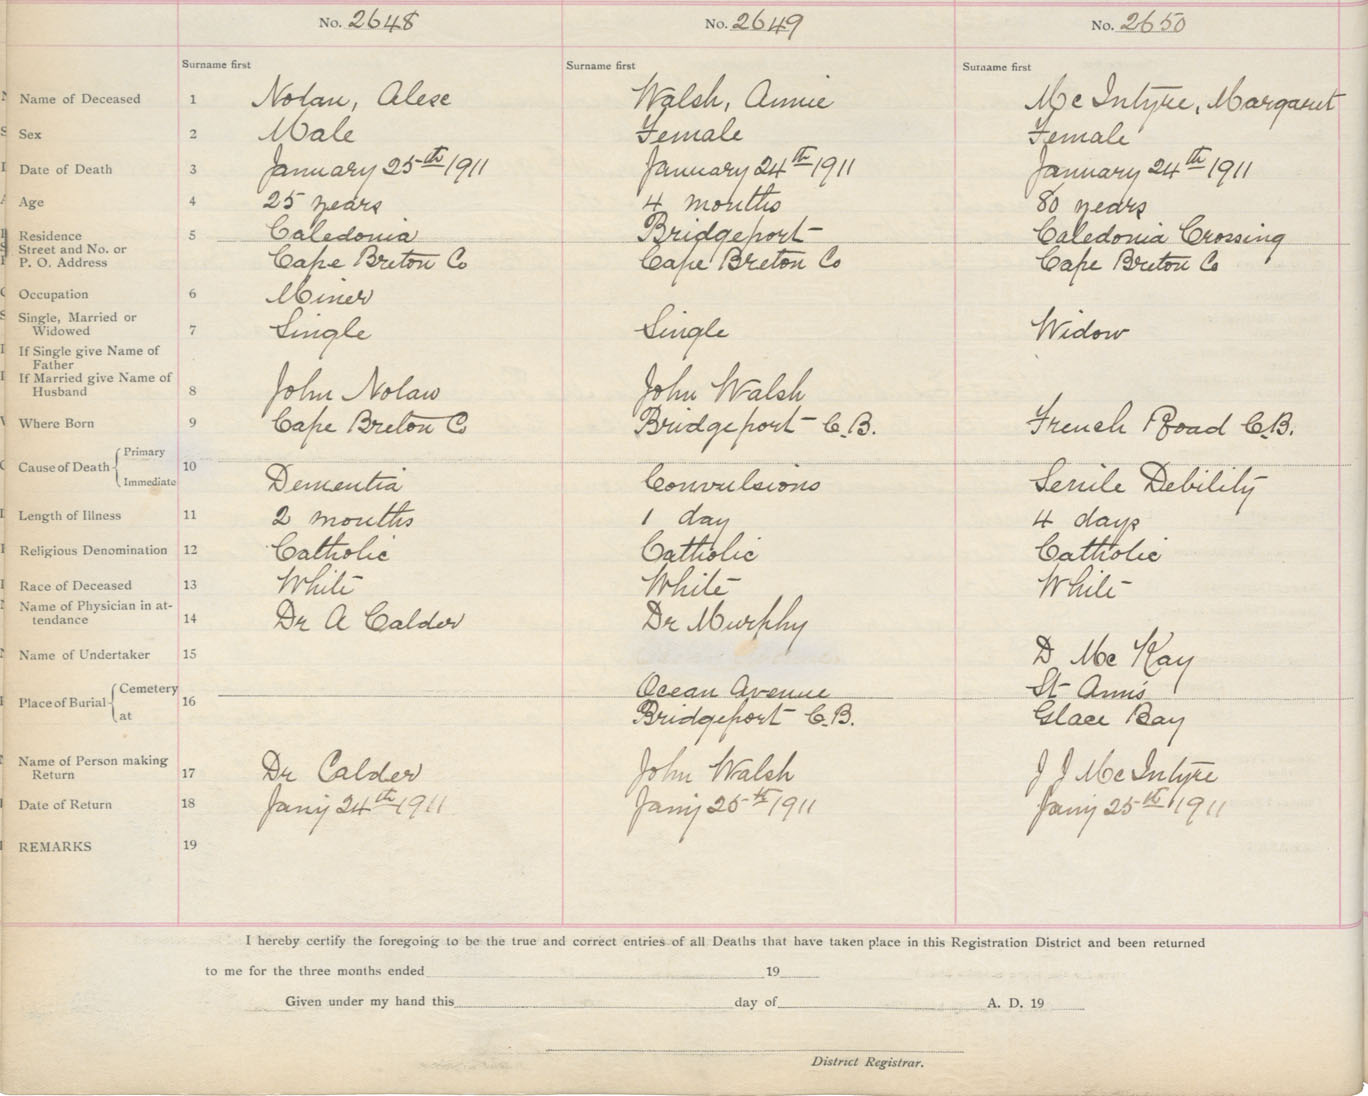 No. 2648 No. 2649 No. 2650
Surname first Surname first Surname first
Name of Deceased 1 Nolan, Alexe Walsh, Annie Mc Intyre, Margaret
Sex 2 Male Female Female
Date of Death 3 January 25th 1911 January 24th 1911 January 24th 1911
Age 4 25 years 4 months 80 years
Residence 5 Caledonia Bridgeport Caledonia Crossing
Street and No. or
P. O. Address Cape Breton Co Cape Breton Co Cape Breton Co
Occupation 6 Miner
Single, Married or
Widowed 7 Single Single Widow
If Single give Name of
Father
If Married give Name of
Husband 8 John Nolan John Walsh
Where Born 9 Cape Breton Co Bridgeport C.B. French Road C.B.
Cause of Death Primary 10
Immediate Dementia Convulsions Senile Debility
Length of Illness 11 2 months 1 day 4 days
Religious Denomination 12 Catholic Catholic Catholic
Race of Deceased 13 White White White
Name of Physician in at-
tendance 14 Dr A Calder Dr Murphy
Name of Undertaker 15 D Mc Kay
Place of Burial Cemetery 16 Ocean Avenue St Anns
at Bridgeport C.B. Glace Bay
Name of Person making
Return 17 Dr Calder John Walsh J J Mc Intyre
Date of Return 18 Jany 24th 1911 Jany 25th 1911 Jany 25th 1911
REMARKS 19
I hereby certify the foregoing to be the true and correct entries of all Deaths that have taken place in this Registration District and been returned
to me for the three months ended 19
Given under my hand this day of A. D. 19
District Registrar.